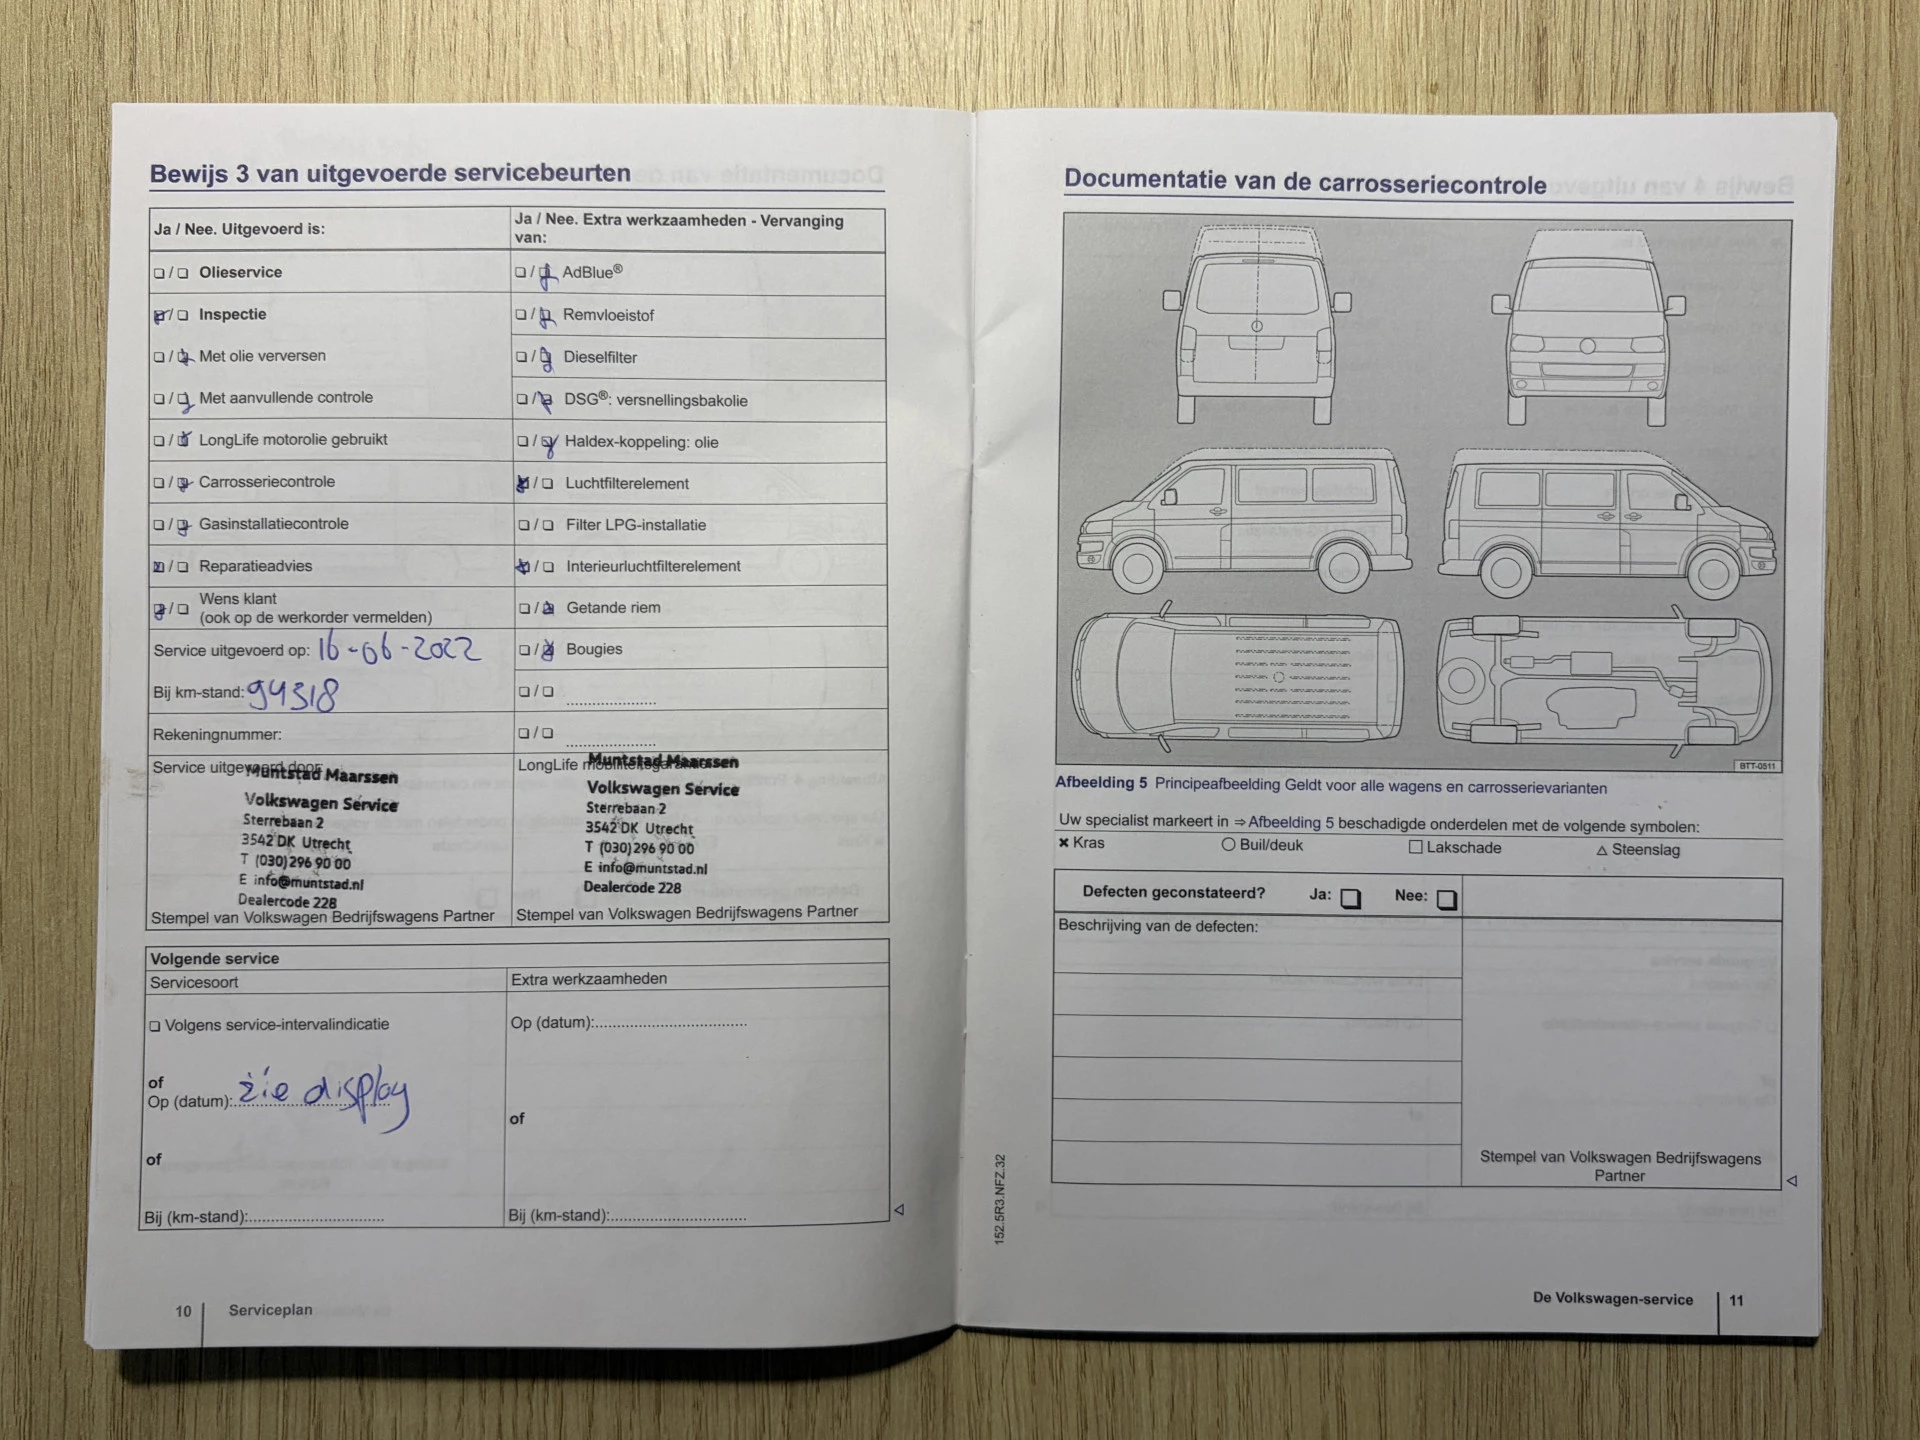 Bewijs 3 van uitgevoerde servicebeurten
Ja / Nee. Uitgevoerd is:
Ja / Nee. Extra werkzaamheden - Vervanging
van:
❑ / ❑ Olieservice
❑ / ❑ AdBlue®
❑ / ❑ Inspectie
❑ / ❑ Remvloeistof
❑ / ❑ Met olie verversen
❑ / ❑ Dieselfilter
❑ / ❑ Met aanvullende controle
❑ / ❑ DSG®: versnellingsbakolie
❑ / ❑ LongLife motorolie gebruikt
❑ / ❑ Haldex-koppeling: olie
❑ / ❑ Carrosseriecontrole
❑ / ❑ Luchtfilterelement
❑ / ❑ Gasinstallatiecontrole
❑ / ❑ Filter LPG-installatie
❑ / ❑ Reparatieadvies
❑ / ❑ Interieurluchtfilterelement
❑ / ❑ Wens klant
(ook op de werkorder vermelden)
❑ / ❑ Getande riem
Service uitgevoerd op: 16-06-2022
❑ / ❑ Bougies
Bij km-stand: 94318
❑ / ❑ ......................
Rekeningnummer:
❑ / ❑ ......................
Service uitgevoerd door:
Muntstad Maarssen
Volkswagen Service
Sterrebaan 2
3542 DK Utrecht
T (030) 296 90 00
E info@muntstad.nl
Dealercode 228
Stempel van Volkswagen Bedrijfswagens Partner
LongLife mobiliteitsgarantie
Muntstad Maarssen
Volkswagen Service
Sterrebaan 2
3542 DK Utrecht
T (030) 296 90 00
E info@muntstad.nl
Dealercode 228
Stempel van Volkswagen Bedrijfswagens Partner
Volgende service
Servicesoort
Extra werkzaamheden
❑ Volgens service-intervalindicatie
of
Op (datum): zie display
of
Bij (km-stand):
Op (datum):
of
Bij (km-stand):
10 Serviceplan
Documentatie van de carrosseriecontrole
BTT-0511
Afbeelding 5 Principeafbeelding Geldt voor alle wagens en carrosserievarianten
Uw specialist markeert in ⇒ Afbeelding 5 beschadigde onderdelen met de volgende symbolen:
✖ Kras ◯ Buil/deuk ☐ Lakschade △ Steenslag
Defecten geconstateerd? Ja: ❑ Nee: ❑
Beschrijving van de defecten:
Stempel van Volkswagen Bedrijfswagens
Partner
152.5R3.NFZ.32
De Volkswagen-service 11